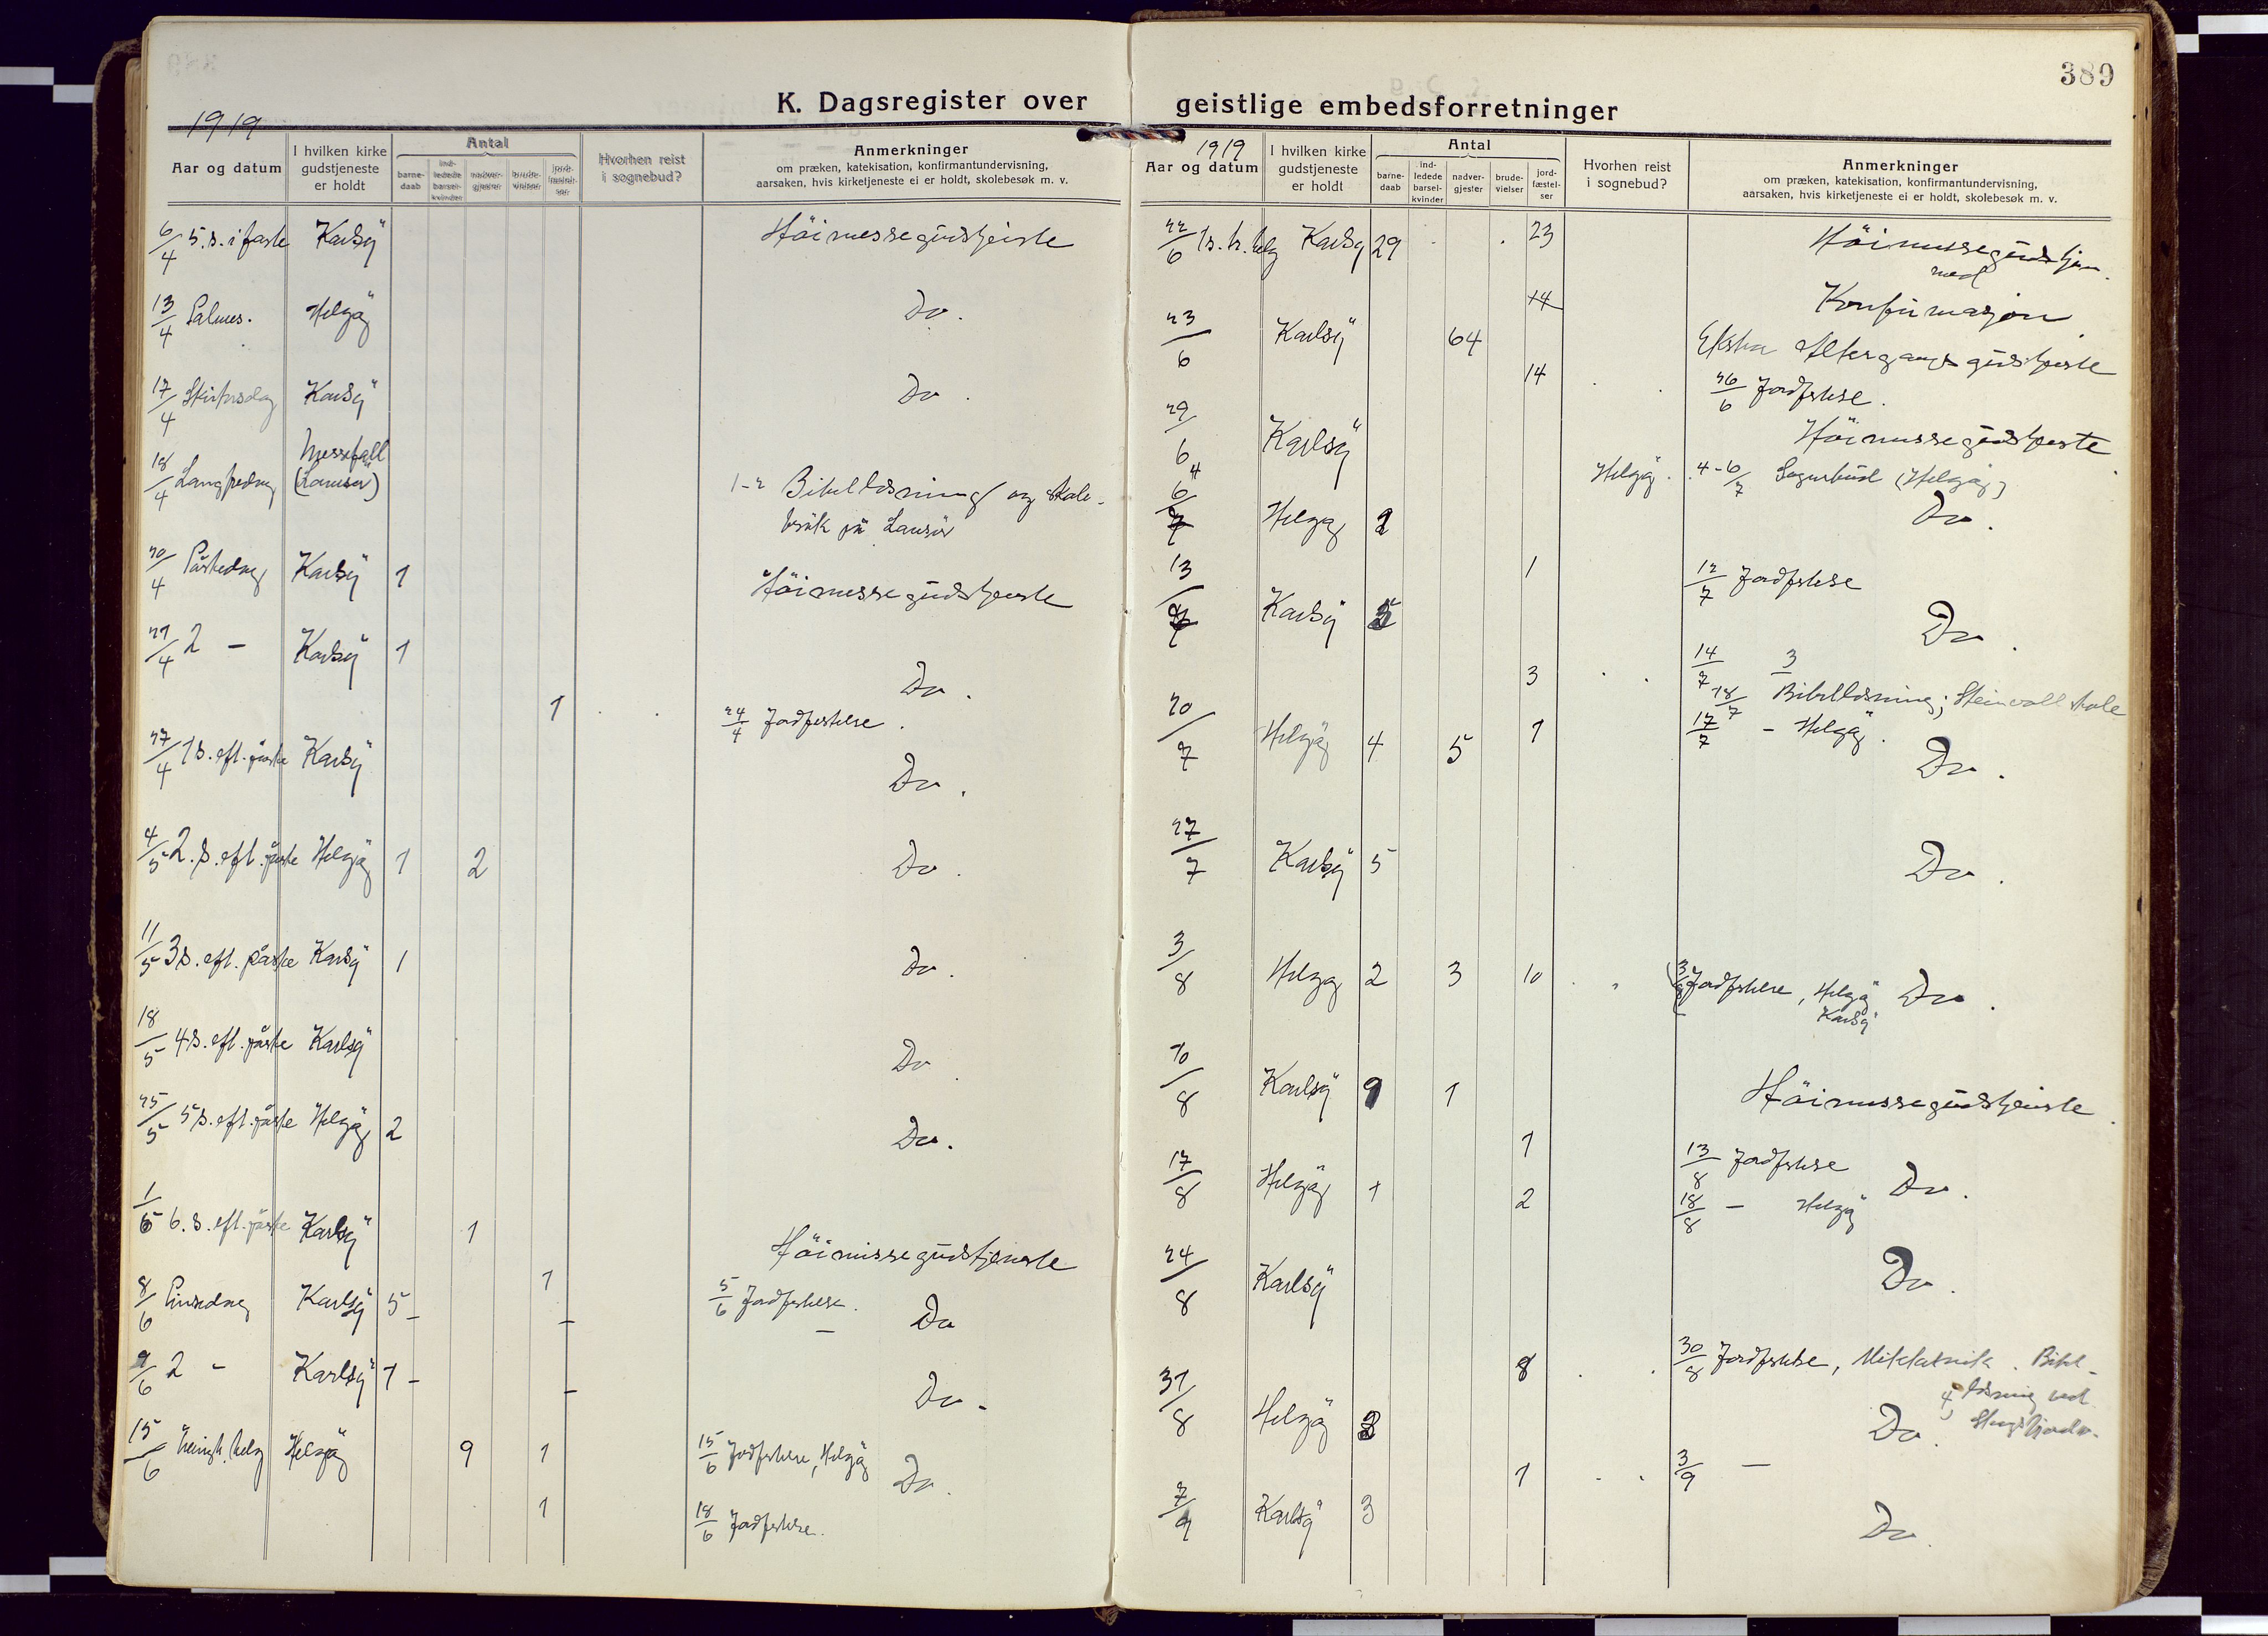 389
K. Dagsregister over
geistlige embedsforretninger
1919
Aar og datum
I hvilken kirke gudstjeneste er holdt
Antal
barne-daab
ind-ledede barsel-kvinder
nadver-gjester
brude-vielser
jord-fæstel-ser
Hvorhen reist i sognebud?
Anmerkninger
om præken, katekisation, konfirmantundervisning,
aarsaken, hvis kirketjeneste ei er holdt, skolebesøk m. v.
6/4 5. s. i faste Karlsöy Höimessegudstjeneste
13/4 Palmes. Helgöy Do.
17/4 Skirtorsdag Karlsöy Do.
18/4 Langfredag Messefall 1-2 Bibellesning og skole-
besök på
20/4 Påskedag Karlsöy 1 Höimessegudstjeneste
21/4 2 - Karlsöy 1 Do.
1 24/4 Jordfestelse.
27/4 1 s. eft. påske Karlsöy Do.
4/5 2. s. eft. påske Helgöy 1 2 Do.
11/5 3 s. eft. påske Karlsöy 1 Do.
18/5 4 s. eft. påske Karlsöy Do.
25/5 5 s. eft. påske Helgöy 2 Do.
1/6 6. s. eft. påske Karlsöy 1 Höimessegudstjeneste
1 5/6 Jordfestelse.
8/6 Pinsedag Karlsöy 5 - Do
9/6 2 - Karlsöy 1 - Do.
15/6 helg Helgöy 9 1 15/6 Jordfestelse, Helgöy Do.
1 18/6 Jordfestelse.
1919
Aar og datum
I hvilken kirke gudstjeneste er holdt
Antal
barne-daab
ind-ledede barsel-kvinder
nadver-gjester
brude-vielser
jord-fæstel-ser
Hvorhen reist i sognebud?
Anmerkninger
om præken, katekisation, konfirmantundervisning,
aarsaken, hvis kirketjeneste ei er holdt, skolebesøk m. v.
22/6 1 s. tr. helg Karlsöy 29 23 Höimessegudstjen.
med
14 Konfirmasjon
23/6 Karlsöy 64 Ekstra Altergangsgudstjeneste
14 26/6 Jordfestelse.
29/6 Karlsöy Höimessegudstjeneste
Helgöy. 4-6/7 Sognebud (Helgöy)
6/7 Helgöy 2 Do.
1 12/7 Jordfestelse
13/7 Karlsöy 5 Do.
3 14/7 3
18/7 Bibellesning; skole
1 17/7 - Helgöy.
20/7 Helgöy 4 5 Do.
27/7 Karlsöy 5 Do.
3/8 Helgöy 2 3 10 3/8 Jordfestelse, Helgöy Do.
Karlsöy
10/8 Karlsöy 9 1 Höimessegudstjeneste
1 13/8 Jordfestelse
17/8 Helgöy 1 Do.
2 18/8 - Helgöy
24/8 Karlsöy Do.
8 30/8 Jordfestelse, . Bibel-
lesning ved
31/8 Helgöy Do.
1 3/9 -
7/9 Karlsöy 3 Do.